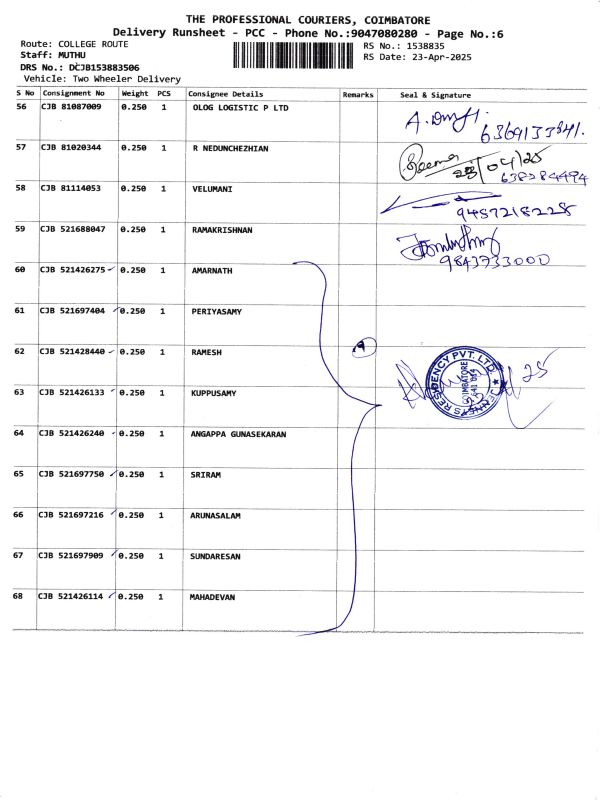 THE PROFESSIONAL COURIERS, COIMBATORE
Delivery Runsheet - PCC - Phone No.:9047080280 - Page No.:6
Route: COLLEGE ROUTE RS No.: 1538835
Staff: MUTHU RS Date: 23-Apr-2025
DRS No.: DCJB153883506
Vehicle: Two Wheeler Delivery
S No Consignment No Weight PCS Consignee Details Remarks Seal & Signature
56 CJB 81087009 0.250 1 OLOG LOGISTIC P LTD
6369133841.
57 CJB 81020344 0.250 1 R NEDUNCHEZHIAN
23/04/25
638284494
58 CJB 81114053 0.250 1 VELUMANI
59 CJB 521688047 0.250 1 RAMAKRISHNAN
9843733000
60 CJB 521426275 0.250 1 AMARNATH
61 CJB 521697404 0.250 1 PERIYASAMY
62 CJB 521428440 0.250 1 RAMESH 9
JENNEYS RESIDENCY PVT. LTD.
COIMBATORE
25
63 CJB 521426133 0.250 1 KUPPUSAMY
64 CJB 521426240 0.250 1 ANGAPPA GUNASEKARAN
65 CJB 521697750 0.250 1 SRIRAM
66 CJB 521697216 0.250 1 ARUNASALAM
67 CJB 521697909 0.250 1 SUNDARESAN
68 CJB 521426114 0.250 1 MAHADEVAN